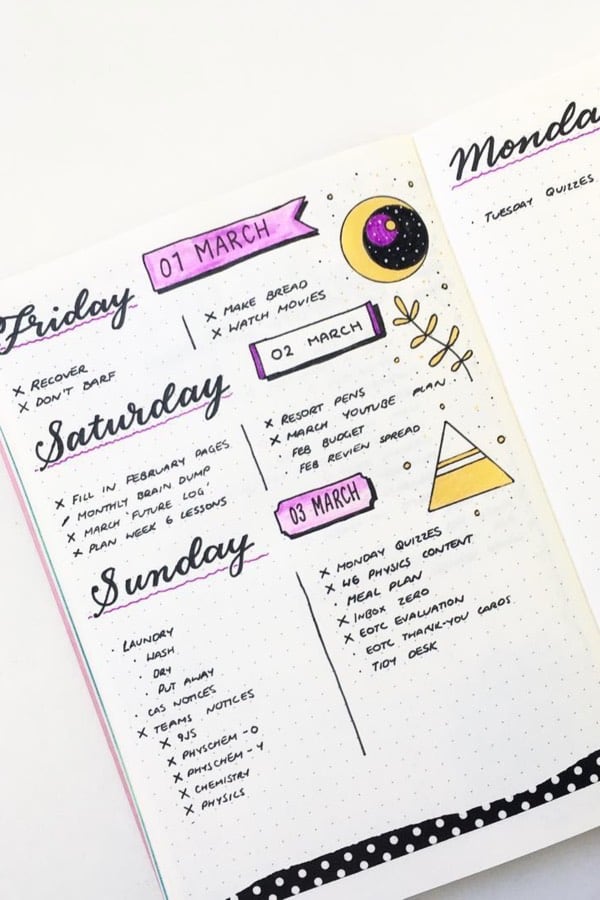 01 MARCH
Friday
X RECOVER
X DON'T BARF
X MAKE BREAD
X WATCH MOVIES
02 MARCH
Saturday
X FILL IN FEBRUARY PAGES
/ MONTHLY BRAIN DUMP
X MARCH 'FUTURE LOG'
X PLAN WEEK 6 LESSONS
X RESORT PENS
X MARCH YOUTUBE PLAN
· FEB BUDGET
· FEB REVIEW SPREAD
03 MARCH
Sunday
LAUNDRY
· WASH
· DRY
· PUT AWAY
· CAS NOTICES
X TEAMS NOTICES
X 9JS
X PHYSCHEM - O
X PHYSCHEM - Y
X CHEMISTRY
X PHYSICS
X MONDAY QUIZZES
X W6 PHYSICS CONTENT
· MEAL PLAN
X INBOX ZERO
X EOTC EVALUATION
· EOTC THANK-YOU CARDS
· TIDY DESK
Monda
· TUESDAY QUIZZES